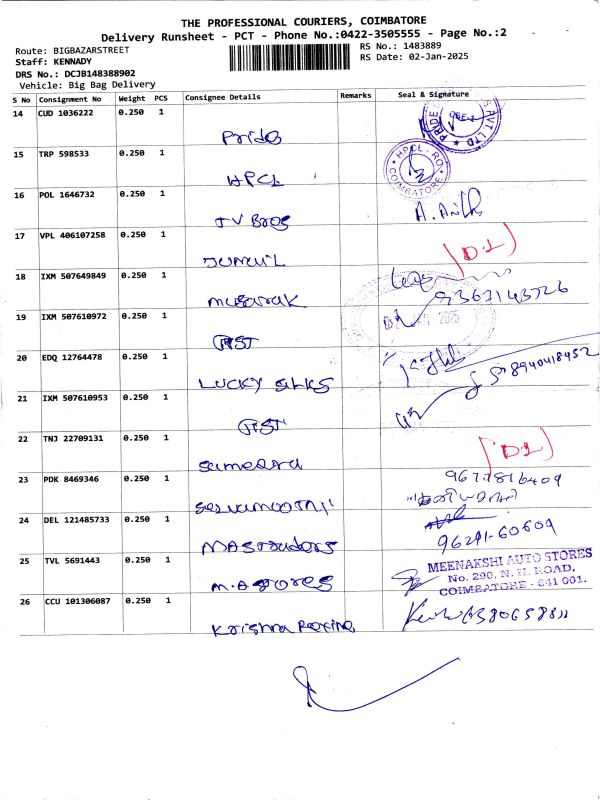 THE PROFESSIONAL COURIERS, COIMBATORE
Delivery Runsheet - PCT - Phone No.:0422-3505555 - Page No.:2
Route: BIGBAZARSTREET
RS No.: 1483889
Staff: KENNADY
RS Date: 02-Jan-2025
DRS No.: DCJB148388902
Vehicle: Big Bag Delivery
S No Consignment No Weight PCS Consignee Details Remarks Seal & Signature
14 CUD 1036222 0.250 1
Pride
PRIDE
VT. LTD
15 TRP 598533 0.250 1
HPCL
HPCL - RO
COIMBATORE
16 POL 1646732 0.250 1
JV Bros
A.
17 VPL 406107258 0.250 1
(D1)
18 IXM 507649849 0.250 1
musarak
9363143726
19 IXM 507610972 0.250 1
2025
20 EDQ 12764478 0.250 1
LUCKY SILKS
8940418452
21 IXM 507610953 0.250 1
22 TNJ 22709131 0.250 1
(D1)
23 PDK 8469346 0.250 1
9677816409
24 DEL 121485733 0.250 1
MAS Traders
96291-60609
25 TVL 5691443 0.250 1
M.A STORES
MEENAKSHI AUTO STORES
No. 290, N. H. ROAD,
COIMBATORE - 641 001.
26 CCU 101306087 0.250 1
Krishna